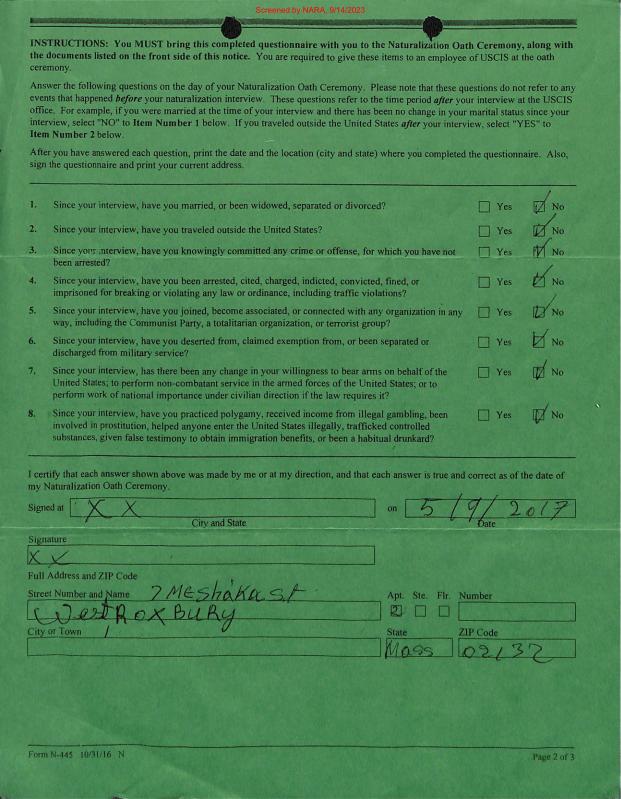 Screened by NARA, 9/14/2023
INSTRUCTIONS: You MUST bring this completed questionnaire with you to the Naturalization Oath Ceremony, along with
the documents listed on the front side of this notice. You are required to give these items to an employee of USCIS at the oath
ceremony.
Answer the following questions on the day of your Naturalization Oath Ceremony. Please note that these questions do not refer to any
events that happened before your naturalization interview. These questions refer to the time period after your interview at the USCIS
office. For example, if you were married at the time of your interview and there has been no change in your marital status since your
interview, select "NO" to Item Number 1 below. If you traveled outside the United States after your interview, select "YES" to
Item Number 2 below.
After you have answered each question, print the date and the location (city and state) where you completed the questionnaire. Also,
sign the questionnaire and print your current address.
1. Since your interview, have you married, or been widowed, separated or divorced? Yes No
2. Since your interview, have you traveled outside the United States? Yes No
3. Since your interview, have you knowingly committed any crime or offense, for which you have not Yes No
been arrested?
4. Since your interview, have you been arrested, cited, charged, indicted, convicted, fined, or Yes No
imprisoned for breaking or violating any law or ordinance, including traffic violations?
5. Since your interview, have you joined, become associated, or connected with any organization in any Yes No
way, including the Communist Party, a totalitarian organization, or terrorist group?
6. Since your interview, have you deserted from, claimed exemption from, or been separated or Yes No
discharged from military service?
7. Since your interview, has there been any change in your willingness to bear arms on behalf of the Yes No
United States; to perform non-combatant service in the armed forces of the United States; or to
perform work of national importance under civilian direction if the law requires it?
8. Since your interview, have you practiced polygamy, received income from illegal gambling, been Yes No
involved in prostitution, helped anyone enter the United States illegally, trafficked controlled
substances, given false testimony to obtain immigration benefits, or been a habitual drunkard?
I certify that each answer shown above was made by me or at my direction, and that each answer is true and correct as of the date of
my Naturalization Oath Ceremony.
Signed at X X on 5/9/2017
City and State Date
Signature
X X
Full Address and ZIP Code
Street Number and Name 7 MEShaka St Apt. Ste. Flr. Number
West ROXBURY 2
City or Town State ZIP Code
Mass 02132
Form N-445 10/31/16 N Page 2 of 3